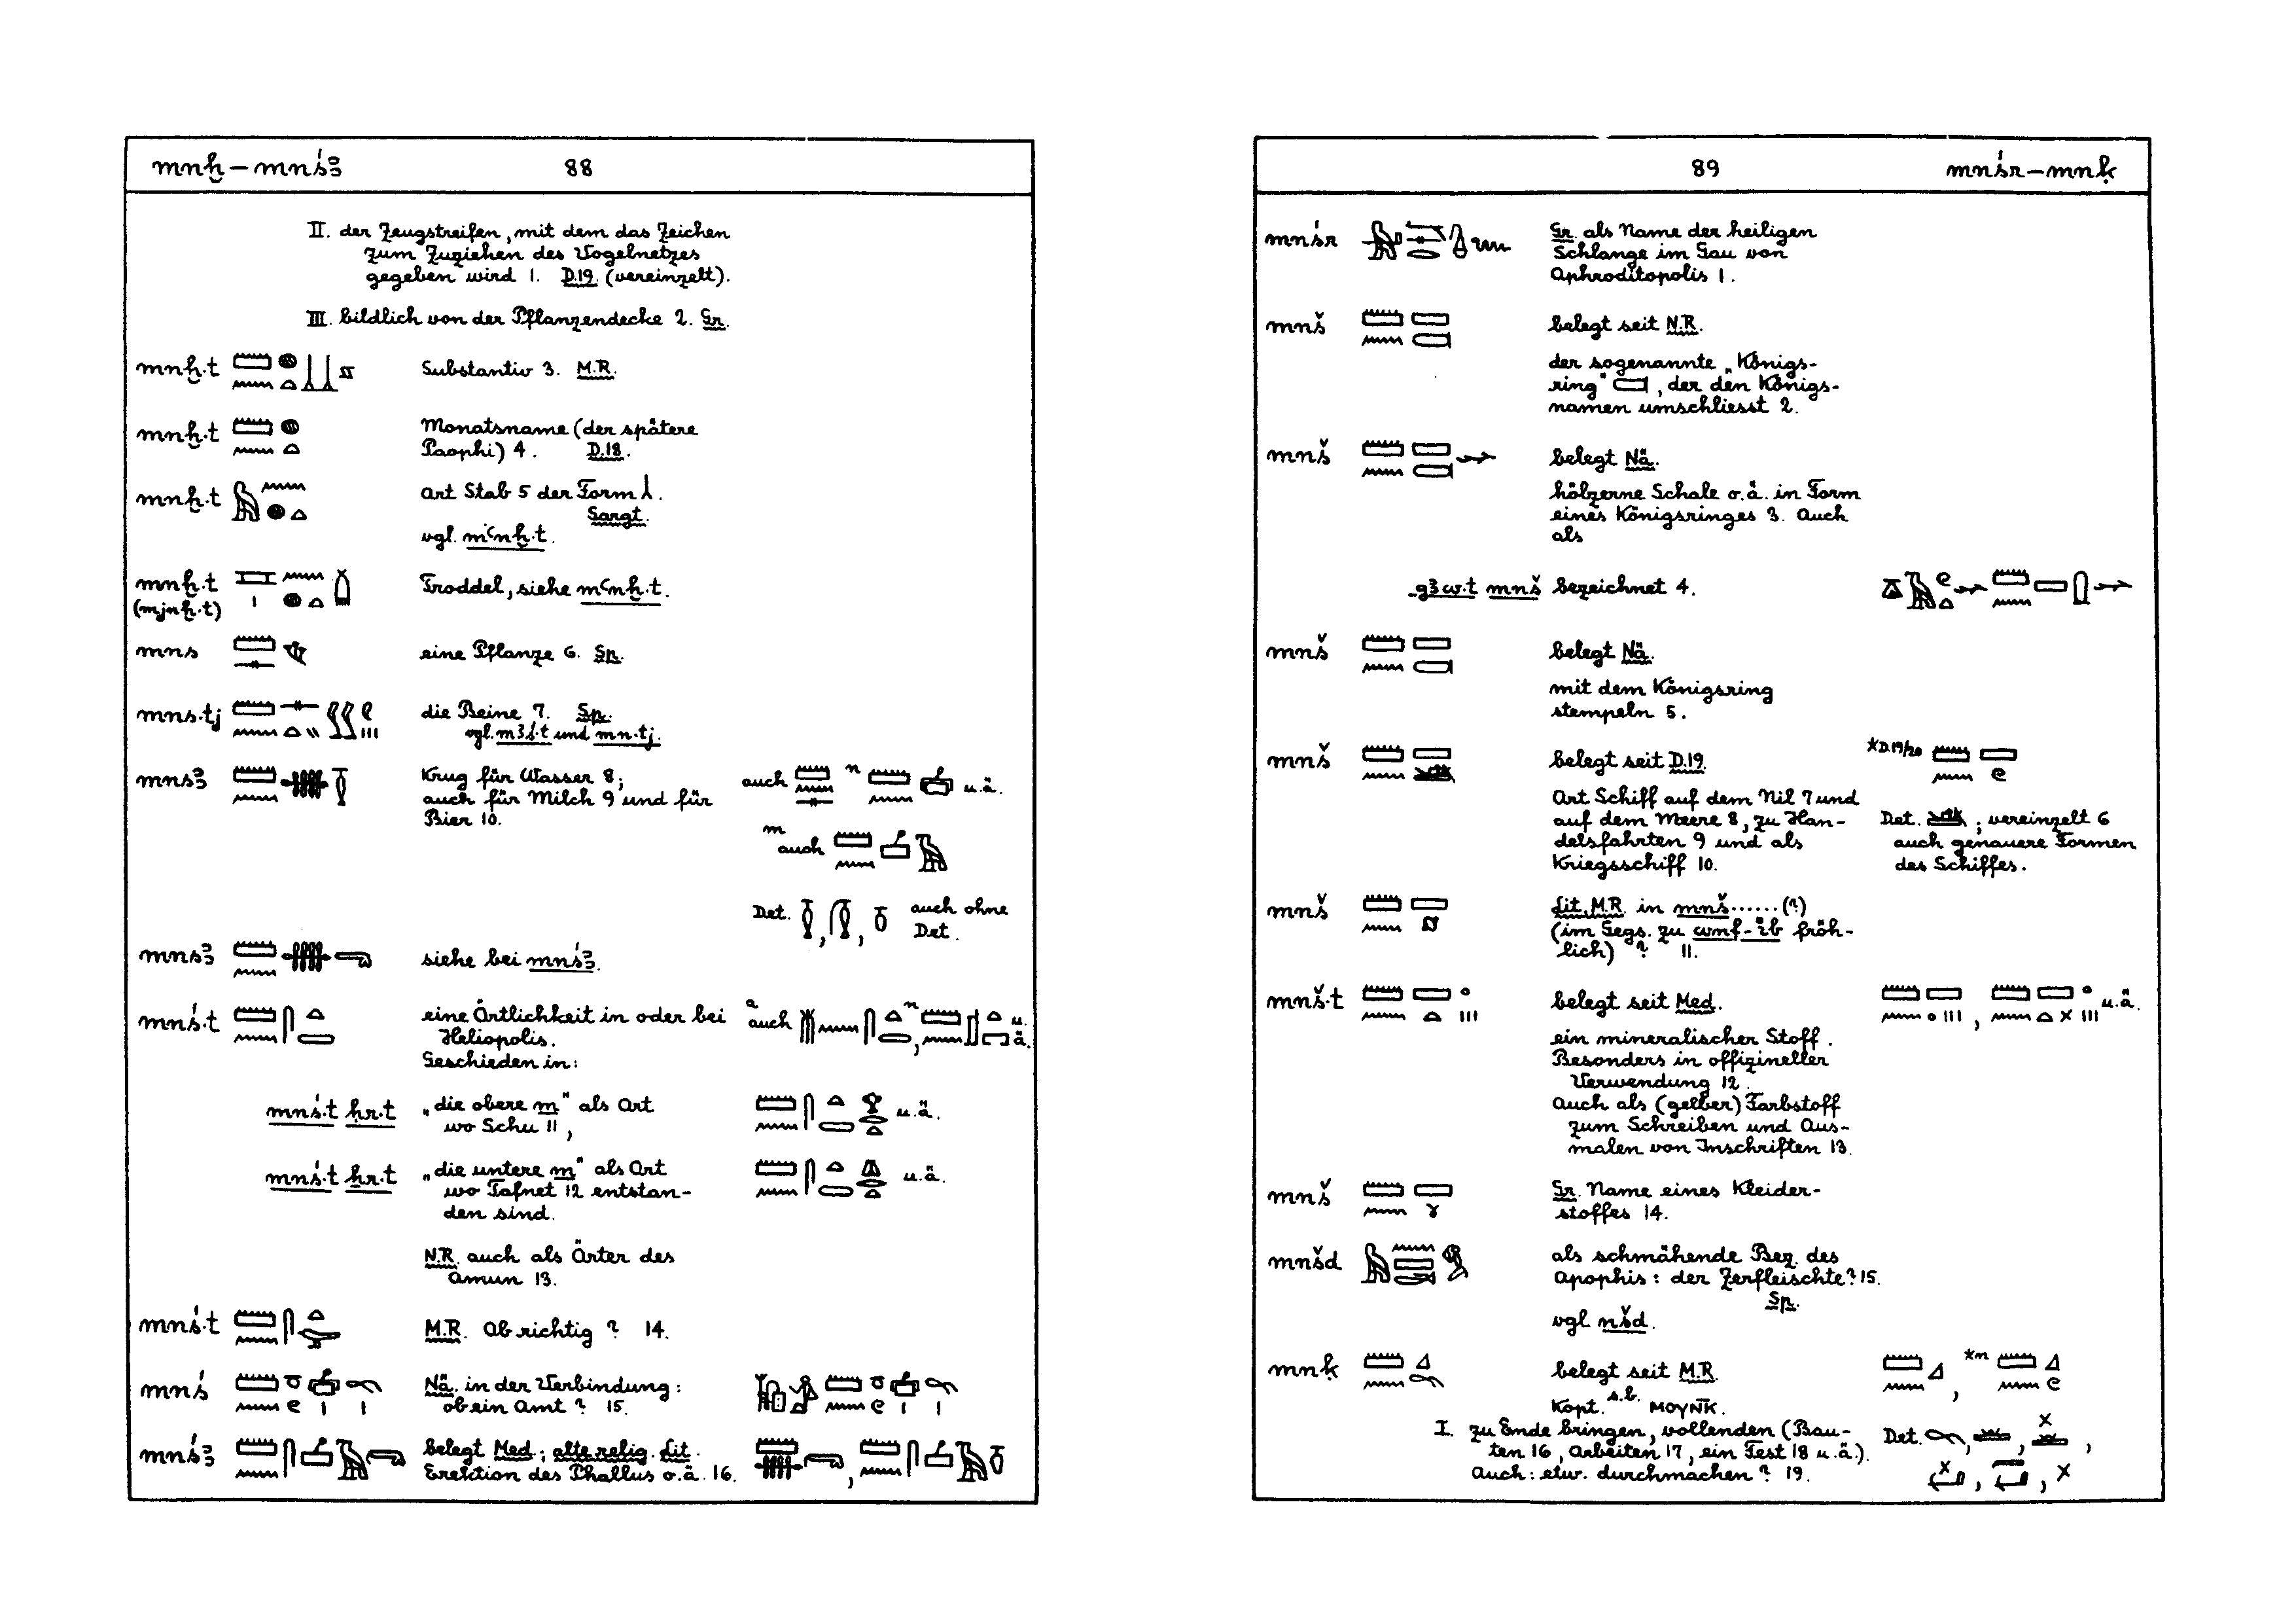 mnḫ – mnś3 88
II. der Zeugstreifen, mit dem das Zeichen
zum Zuziehen des Vogelnetzes
gegeben wird 1. D.19. (vereinzelt).
III. bildlich von der Pflanzendecke 2. Gr.
mnḫ.t Substantiv 3. M.R.
mnḫ.t Monatsname (der spätere
Paophi) 4. D.18.
mnḫ.t Art Stab 5 der Form .
Sargt.
vgl. mꜥnḫ.t.
mnḫ.t Troddel, siehe mꜥnḫ.t.
(mjnḫ.t)
mns eine Pflanze 6. Sp.
mns.tj die Beine 7. Sp.
vgl. m3ś.t und mn.tj.
mns3 Krug für Wasser 8; auch n u.ä.
auch für Milch 9 und für
Bier 10.
m auch
Det. , , auch ohne
Det.
mns3 siehe bei mnś3.
mnś.t eine Örtlichkeit in oder bei a auch n , u.
Heliopolis. ä.
Geschieden in:
mnś.t ḥr.t „die obere m" als Ort u.ä.
wo Schu 11,
mnś.t ẖr.t „die untere m" als Ort u.ä.
wo Tafnet 12 entstan-
den sind.
N.R. auch als Örter des
Amun 13.
mnś.t M.R. Ob richtig? 14.
mnś Nä. in der Verbindung:
ob ein Amt? 15.
mnś3 belegt Med.; alte relig. Lit. ,
Erektion des Phallus o.ä. 16.
89 mnśr – mnḳ
mnśr Gr. als Name der heiligen
Schlange im Gau von
Aphroditopolis 1.
mnš belegt seit N.R.
der sogenannte „Königs-
ring" , der den Königs-
namen umschliesst 2.
mnš belegt Nä.
hölzerne Schale o.ä. in Form
eines Königsringes 3. Auch
als
g3w.t mnš bezeichnet 4.
mnš belegt Nä.
mit dem Königsring
stempeln 5.
mnš belegt seit D.19. *D.19/20
Art Schiff auf dem Nil 7 und
auf dem Meere 8, zu Han- Det. ; vereinzelt 6
delsfahrten 9 und als auch genauere Formen
Kriegsschiff 10. des Schiffes.
mnš Lit. M.R. in mnš......(?)
(im Gegs. zu wnf-ib fröh-
lich) ? 11.
mnš.t belegt seit Med. , u.ä.
ein mineralischer Stoff.
Besonders in offizineller
Verwendung 12.
Auch als (gelber) Farbstoff
zum Schreiben und Aus-
malen von Inschriften 13.
mnš Gr. Name eines Kleider-
stoffes 14.
mnšd als schmähende Bez. des
Apophis: der Zerfleischte? 15.
Sp.
vgl. nšd.
mnḳ belegt seit M.R. , *n
Kopt. s.b. ⲙⲟⲩⲛ̅ⲕ.
I. zu Ende bringen, vollenden (Bau- Det. , , ,
ten 16, Arbeiten 17, ein Fest 18 u.ä.).
Auch: etw. durchmachen? 19. , ,